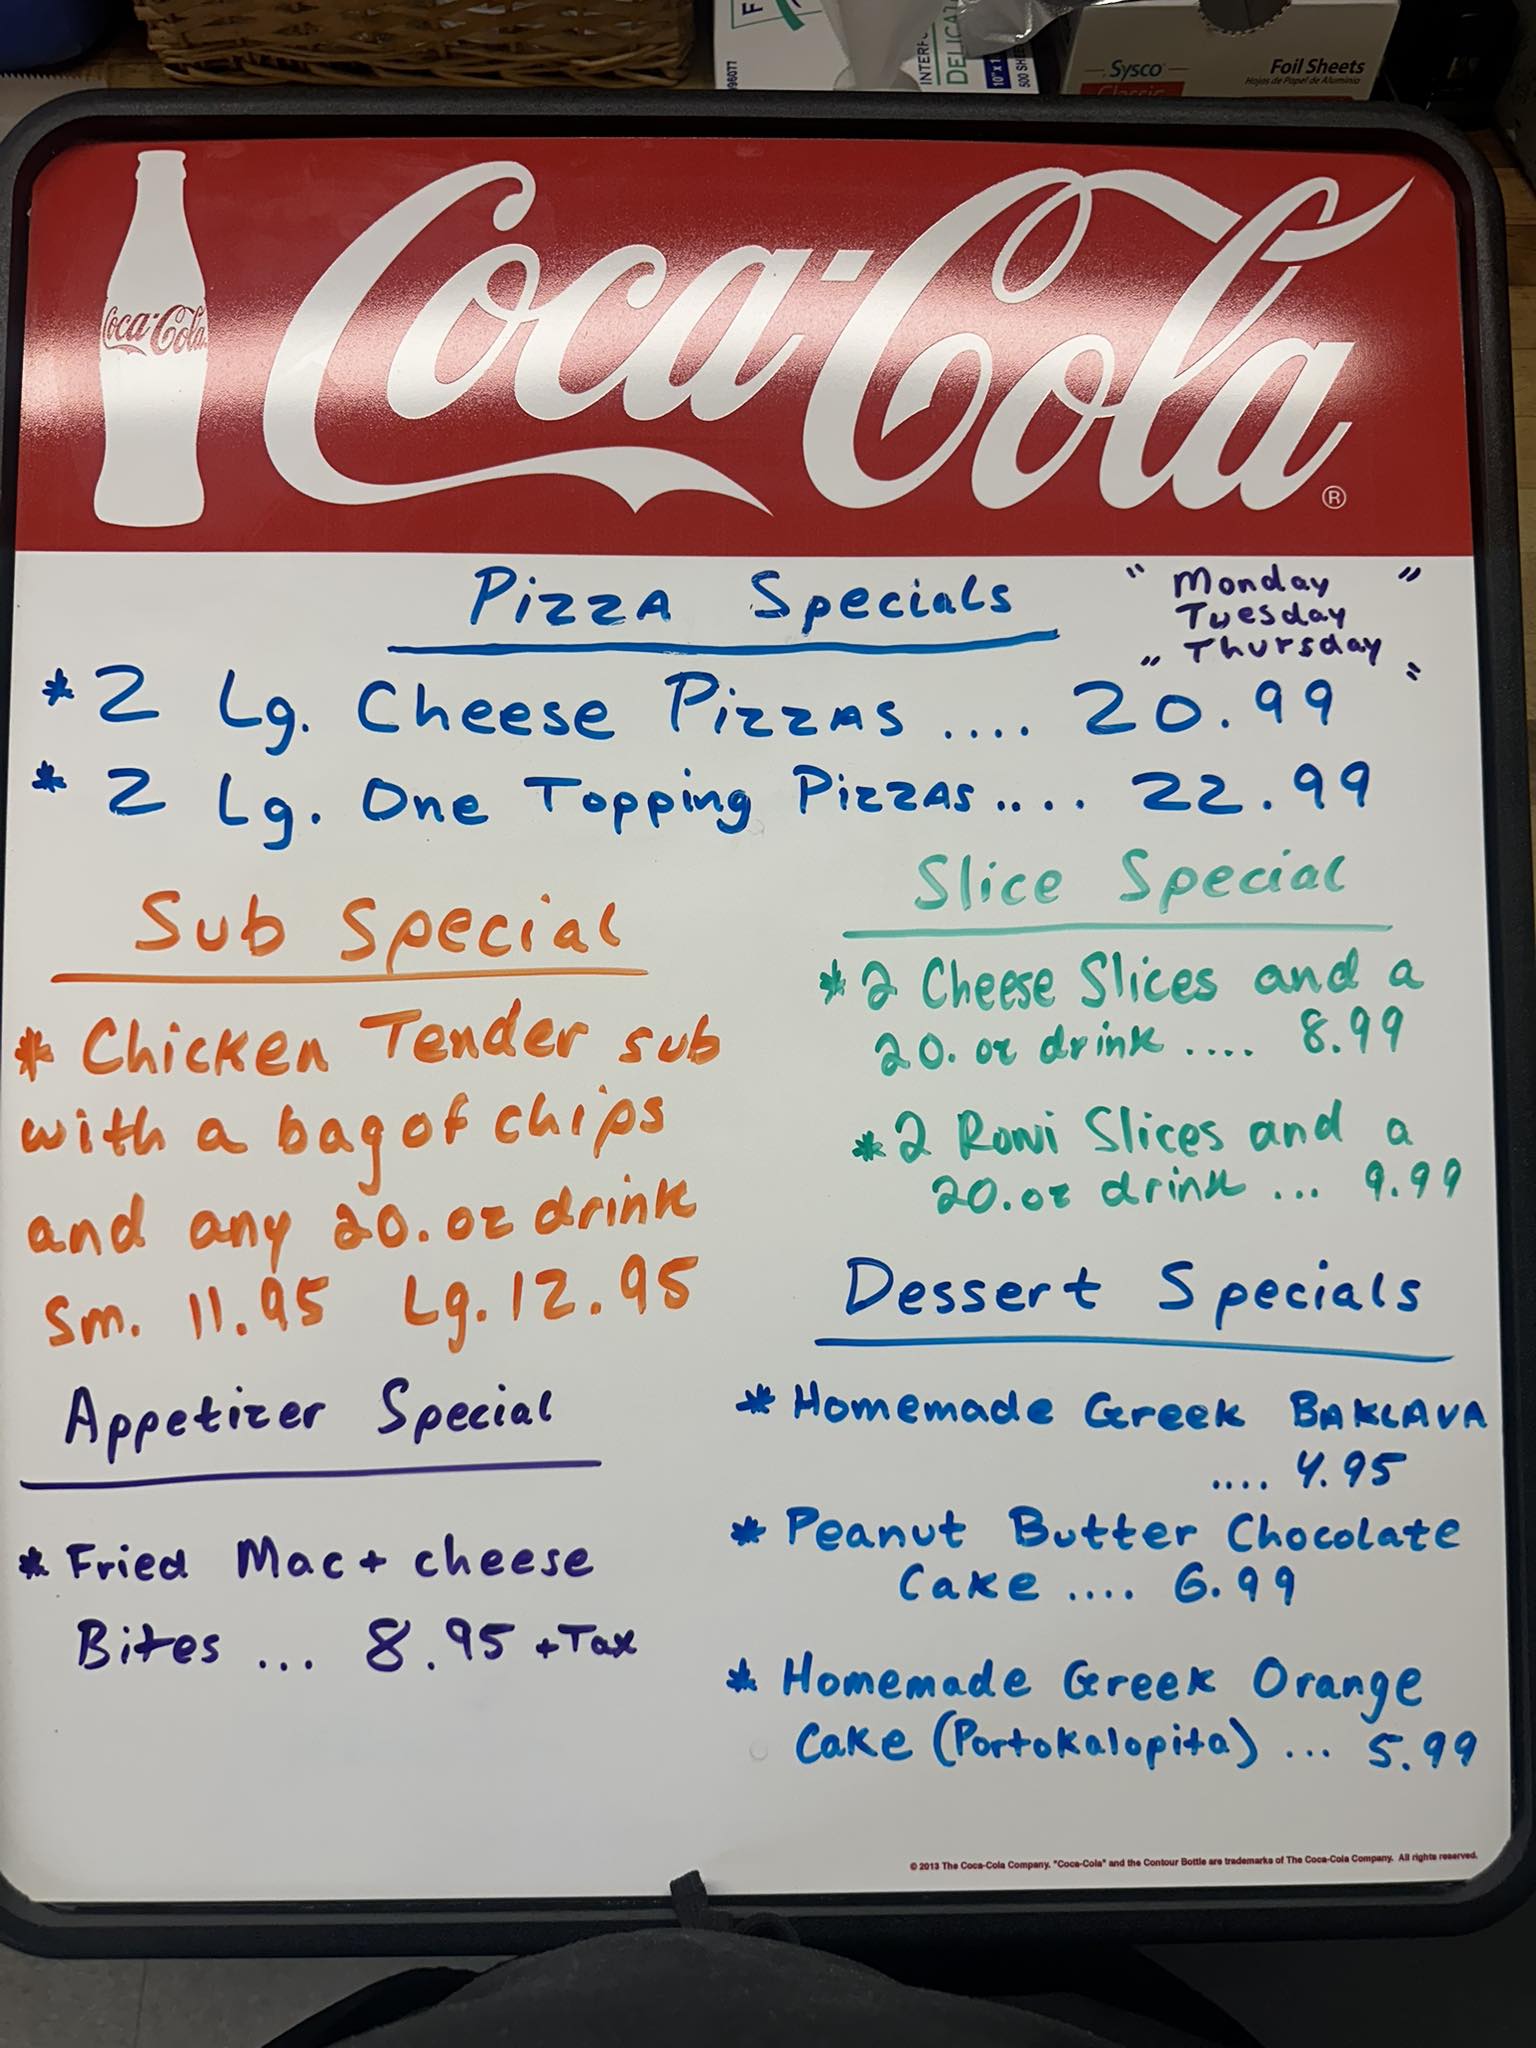 Sysco
Classic
Foil Sheets
Hojas de Papel de Aluminio
96077
INTERF
DELICA
10" x 1
500 SHE
Coca-Cola
Coca-Cola®
Pizza Specials
" Monday "
Tuesday
" Thursday "
* 2 Lg. Cheese Pizzas .... 20.99
* 2 Lg. One Topping Pizzas .... 22.99
Sub Special
* Chicken Tender sub
with a bag of chips
and any 20.oz drink
Sm. 11.95 Lg. 12.95
Slice Special
* 2 Cheese Slices and a
20.oz drink .... 8.99
* 2 Roni Slices and a
20.oz drink ... 9.99
Appetizer Special
* Fried Mac + cheese
Bites ... 8.95 + Tax
Dessert Specials
* Homemade Greek BAKLAVA
.... 4.95
* Peanut Butter Chocolate
Cake .... 6.99
* Homemade Greek Orange
Cake (Portokalopita) ... 5.99
© 2013 The Coca-Cola Company. "Coca-Cola" and the Contour Bottle are trademarks of The Coca-Cola Company. All rights reserved.